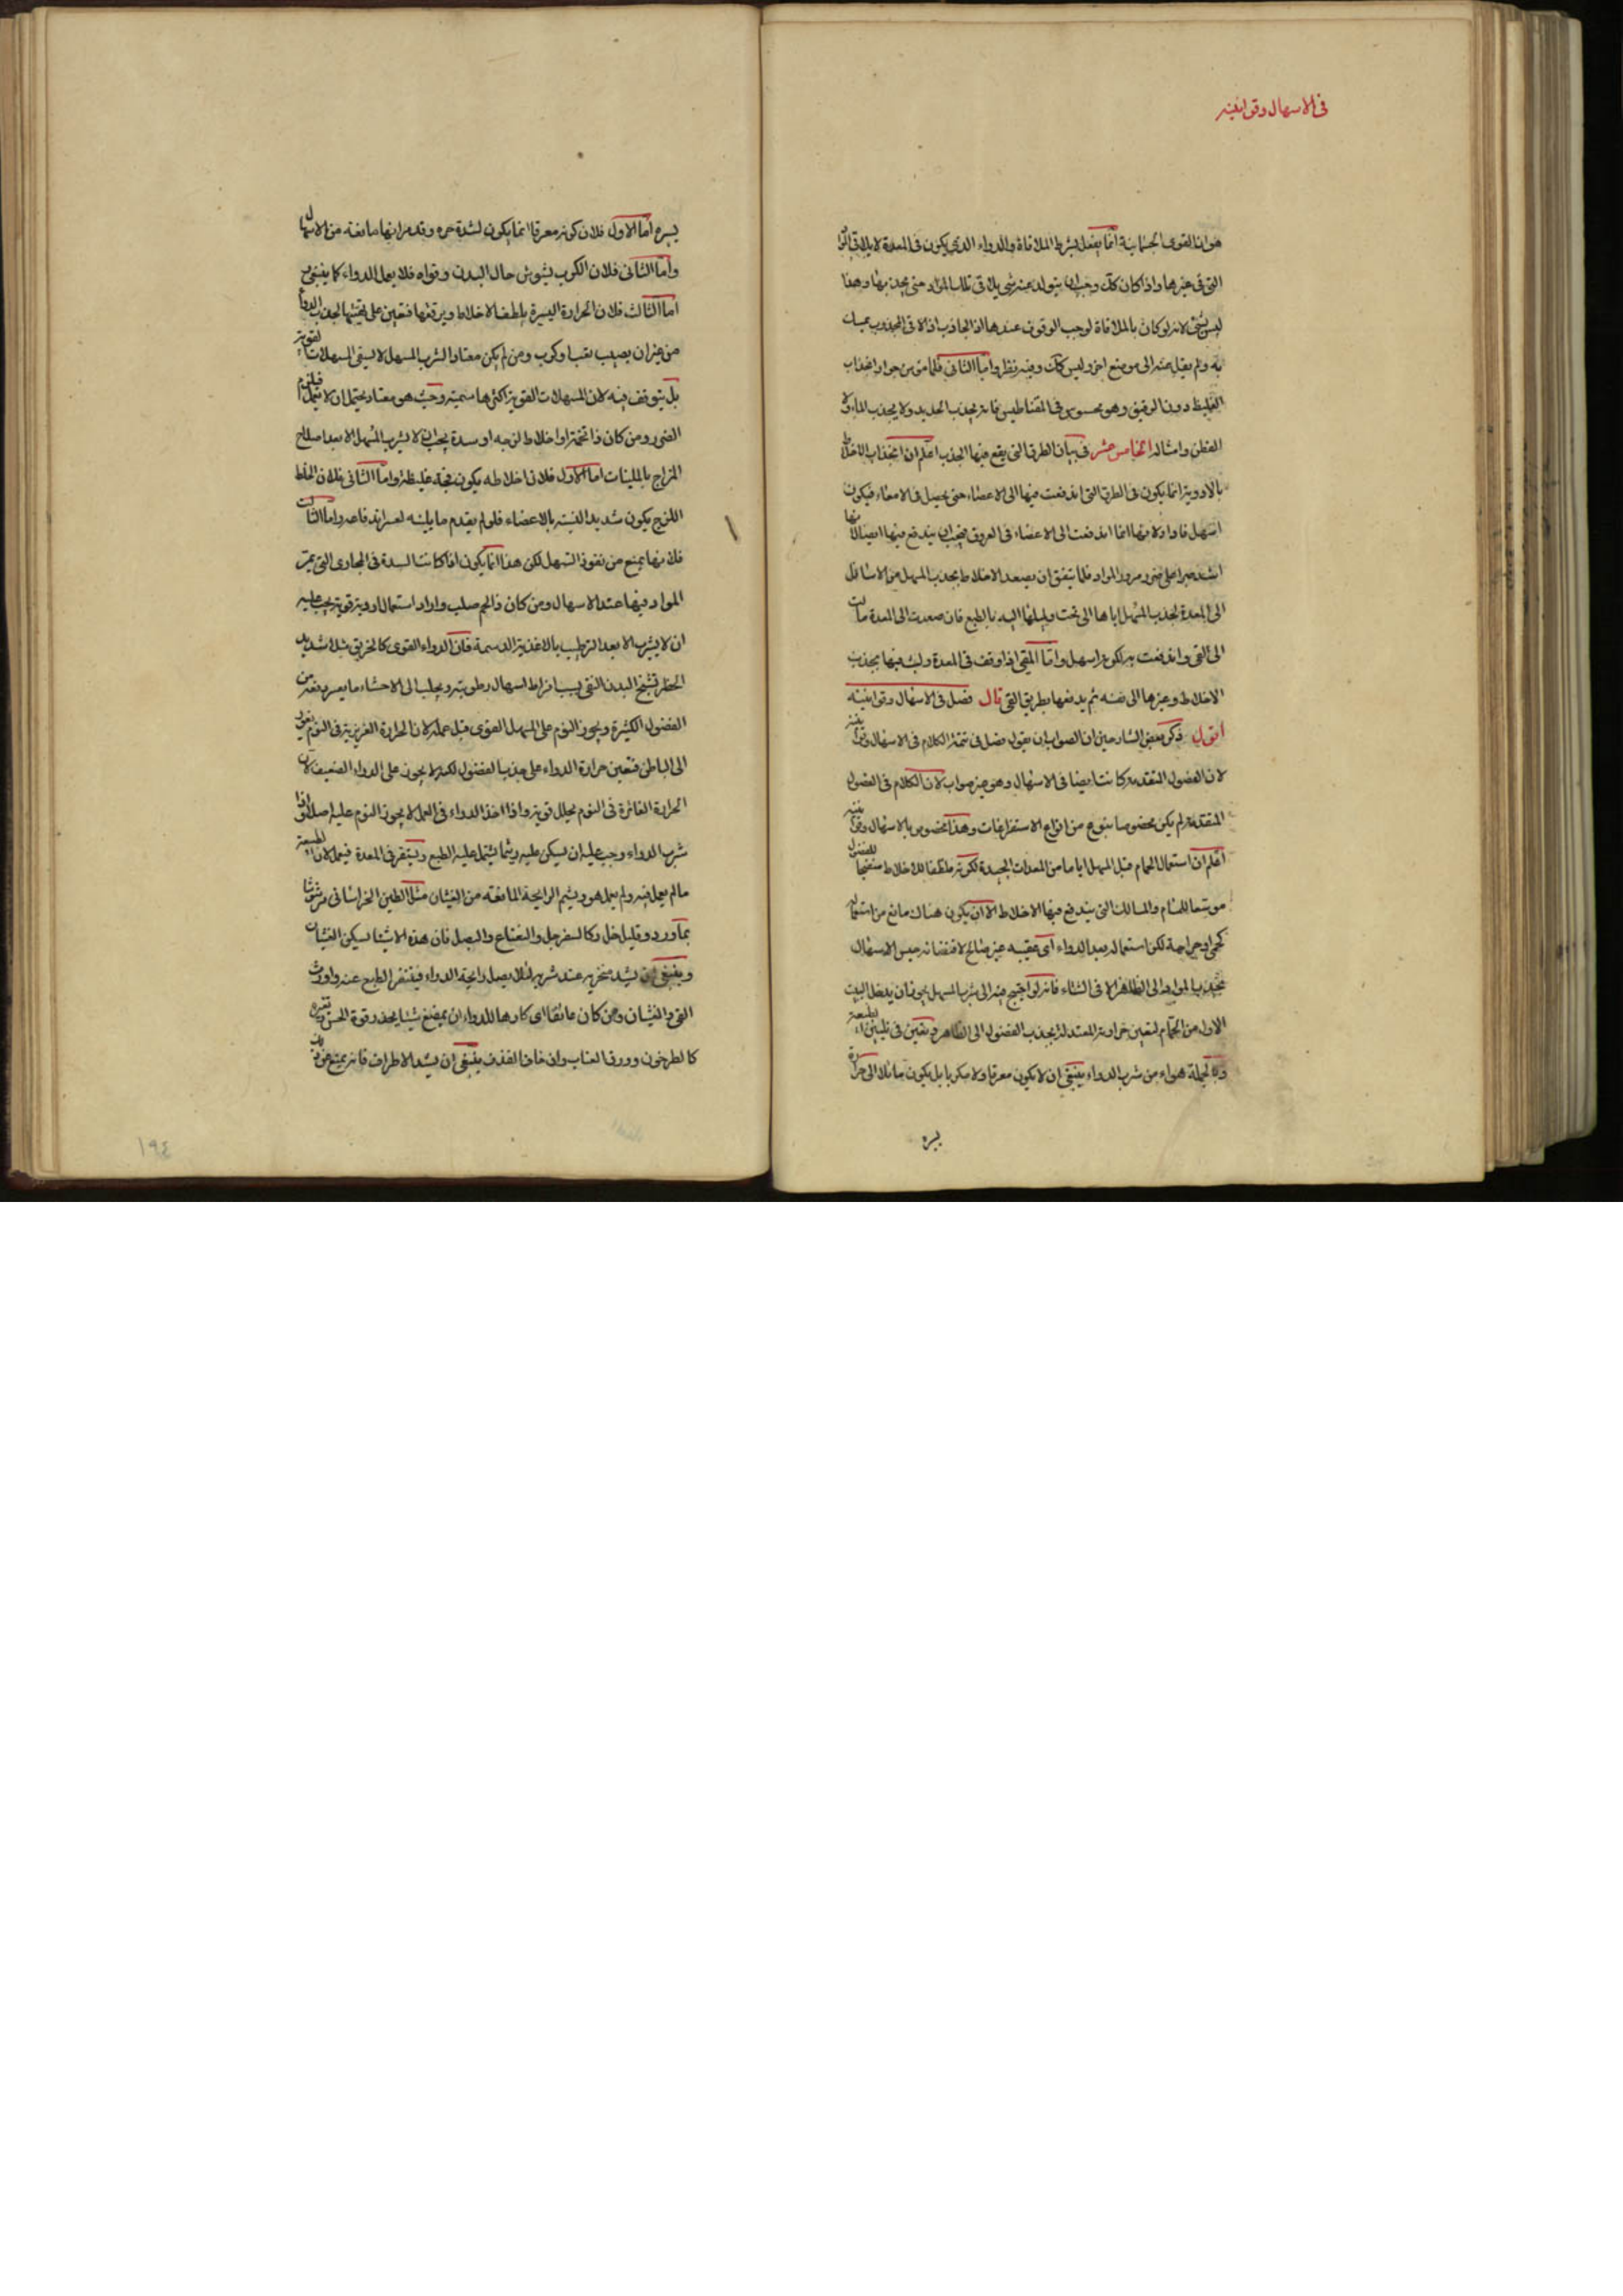 في الاسهال وقوانينه
هو ان القوى الجسمانية انما يفعل بشرط الملاقاة والدواء الذي يكون في المعدة لا يلاقي
التي في غيرها واذا كان كك وجب ان يتولد عنه شي يلاقي تلك المواد حتى يجذبها وهذا
ليس بشي لانه لو كان بالملاقاة لوجب الوقوف عندها اذ الجاذب اذا لاقى المجذوب
به ولم ينقل عنه الى موضع اخر وليس كك وفيه نظر واما الثاني فلما من جواز انجذاب
الغليظ دون الرقيق وهو محسوس في المقناطيس فانه يجذب الحديد ولا يجذب الماء ولا
القطن وامثاله الخامس عشر في بيان الطرق التي يقع فيها الجذب اعلم ان انجذاب الاخلاط
بالادوية انما يكون في الطرق التي اندفعت فيها الى الاعضاء حتى يحصل في الامعاء فيكون
اسهل فاولا ولانها انما اندفعت الى الاعضاء في العروق فيجب ان يندفع فيها ايضا لانها
اشد صبرا على ضرر مرور المواد فلما يتفق ان يصعد الاخلاط بجذب المسهل من الاسافل
الى المعدة لجذب المسهل اياها الى تحت وليلها اليه بالطبع فان صعدت الى المعدة مالت
الى القي واندفعت به لكونه اسهل واما المقي اذا وقف في المعدة ولبث فيها يجذب
الاخلاط وغيرها الى نفسه ثم يدفعها بطريق القي قال فصل في الاسهال وقوانينه
اقول ذكر بعض الشارحين ان الصواب ان يقول فصل في تتمة الكلام في الاسهال وقوانينه
لان الفصول المتقدمة كانت ايضا في الاسهال وهو غير صواب لان الكلام في الفصول
المتقدمة لم يكن مخصوصا بنوع من انواع الاستفراغات وهذا مخصوص بالاسهال وقوانينه
اعلم ان استعمال الحمام قبل المسهل اياما من المعدات الجيدة لكونه ملطفا للاخلاط منضجا للفضول
موسعا للمسام والمسالك التي يندفع فيها الاخلاط الا ان يكون هناك مانع من استعماله
كحمى او جراحة لكن استعماله بعد الدواء اى عقيبه غير صالح لاقتضائه حبس الاسهال
بجذب المواد الى الظاهر الا في الشتاء فانه لو احتيج فيه الى شرب المسهل يجوز ان يدخل البيت
الاول من الحمام لتعين حرارته المعتدلة بجذب الفضول الى الظاهر وتعين في تليين الطبيعة
وبالجملة هواء من شرب الدواء ينبغي ان لا يكون معرقا ولا مكربا بل يكون مائلا الى حرارة
يسيره
يسيره اما الاول فلان كونه معرقا انما يكون لشدة حره وقد مر انها مانعة من الاسهال
واما الثاني فلان الكرب يشوش حال البدن وقواه فلا يعمل الدواء كما ينبغي
اما الثالث فلان الحرارة اليسيرة يلطف الاخلاط ويرققها فتعين على تهيئتها لجذب الدواء
من غير ان يصيب تعب او كرب ومن لم يكن معتادا لشرب المسهل لا يسقى المسهلات القوية
بل يتوقف فيه لان المسهلات القوية اكثرها سمية وحيث هو معتاد يحتمل ان لا يتحمل فيلزم
الضرر ومن كان ذا تخمة او اخلاط لزجة او سدة يجب ان لا يشرب المسهل الا بعد اصلاح
المزاج بالملينات اما الاول فلان اخلاطه يكون فجة غليظة واما الثاني فلان الخلط
اللزج يكون شديد التشبث بالاعضاء فلو لم يقدم ما يلينه لعسر اندفاعه واما الثالث
فلانها يمنع من نفوذ المسهل لكن هذا انما يكون اذا كانت السدة في المجاري التي تمر
المواد فيها عند الاسهال ومن كان ذا لحم صلب واراد استعمال ادوية قوية يجب عليه
ان لا يشرب الا بعد الترطيب بالاغذية الدسمة فان الدواء القوى كالخربق مثلا شديد
الخطر تشنج البدن النقي بسبب افراط اسهال رطوبته ويجلب الى الاحشاء ما يعسر دفعه من
الفضول الكثيرة ويجوز النوم على المسهل القوى قبل عمله لان الحرارة الغريزية في النوم يغور
الى الباطن فتعين حرارة الدواء على جذب الفضول لكنه لا يجوز على الدواء الضعيف لان
الحرارة الغائرة في النوم يحلل قوته واذا اخذ الدواء في العمل لا يجوز النوم عليه اصلا واذا
شرب الدواء وجب عليه ان يسكن عليه ريثما يشتمل عليه الطبع ويستقر في المعدة فيعمل لان الطبيعة
ما لم يعمل فيه ولم يعمل هو ويشم الرايحة المانعة من الغثيان مثل الطين الخراساني مرشوشا
بماورد وقليل خل وكالسفرجل والنعناع والبصل فان هذه الاشيا يسكن الغثيان
وينبغي ان يشد منخريه عند شربه لئلا يصل رايحة الدواء فيتنفر الطبع عنه واورث
القي والغثيان ومن كان عائفا اى كارها للدواء ان يمضغ شيئا يخدر قوة الحس
كالطرخون وورق العناب وان خاف القذف ينبغي ان يشد الاطراف فانه يمنع من
١٩٤